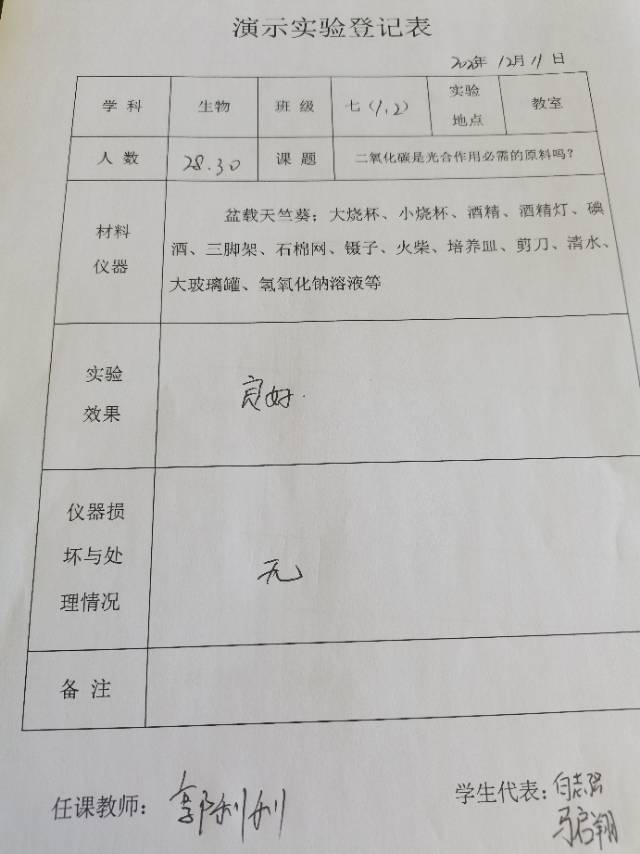 演示实验登记表
年 12月11日
学科 生物 班级 七(1.2) 实验地点 教室
人数 28.30 课题 二氧化碳是光合作用必需的原料吗?
材料
仪器
盆载天竺葵；大烧杯、小烧杯、酒精、酒精灯、碘
酒、三脚架、石棉网、镊子、火柴、培养皿、剪刀、清水、
大玻璃罐、氢氧化钠溶液等
实验
效果
良好.
仪器损
坏与处
理情况
无
备注
任课教师：郭利利
学生代表：白志强
马启翔